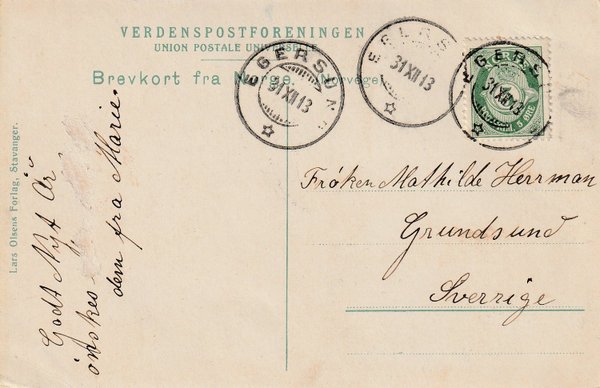 VERDENSPOSTFORENINGEN
UNION POSTALE UNIVERSELLE
Brevkort fra Norge. (Norvège)
EGERSUND
31 XII 13
EGERS
31 XII 13
EGERS
31 XII 13
5 ØRE
Frøken Mathilde Herrman
Grundsund
Sverrige
Godt Nytt År
önskes
dem fra Marie.
Lars Olsens Forlag, Stavanger.